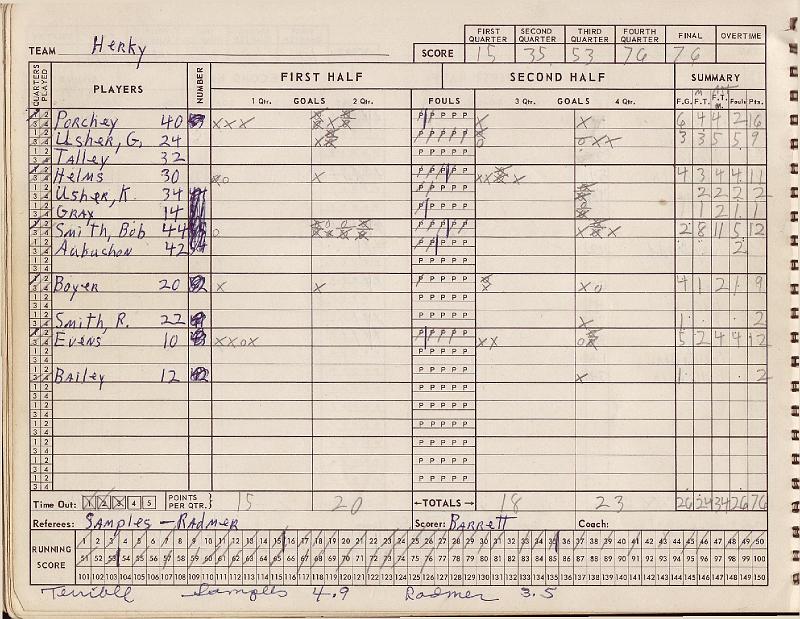 TEAM Herky
SCORE FIRST QUARTER 15 SECOND QUARTER 35 THIRD QUARTER 53 FOURTH QUARTER 76 FINAL 76 OVERTIME
QUARTERS PLAYED PLAYERS NUMBER FIRST HALF SECOND HALF SUMMARY
1 Qtr. GOALS 2 Qtr. FOULS 3 Qtr. GOALS 4 Qtr. F.G. F.T. F.T. Fouls Pts.
Porchey 40 6 4 4 2 16
Usher, G. 24 3 3 5 5 9
Talley 32
Helms 30 4 3 4 4 11
Usher, K. 34 2 2 2 2
Gray 14 1 2 1 1
Smith, Bob 44 2 8 11 5 12
Aubuchon 42 2
Boyer 20 4 1 2 1 9
Smith, R. 22 1 2
Evens 10 5 2 4 4 12
Bailey 12 1 2
Time Out: 1 2 3 4 5 POINTS PER QTR. 15 20 ←TOTALS→ 18 23 26 24 34 26 76
Referees: Samples - Radmer Scorer: Barrett Coach:
1 2 3 4 5 6 7 8 9 10 11 12 13 14 15 16 17 18 19 20 21 22 23 24 25 26 27 28 29 30 31 32 33 34 35 36 37 38 39 40 41 42 43 44 45 46 47 48 49 50
RUNNING SCORE 51 52 53 54 55 56 57 58 59 60 61 62 63 64 65 66 67 68 69 70 71 72 73 74 75 76 77 78 79 80 81 82 83 84 85 86 87 88 89 90 91 92 93 94 95 96 97 98 99 100
101 102 103 104 105 106 107 108 109 110 111 112 113 114 115 116 117 118 119 120 121 122 123 124 125 126 127 128 129 130 131 132 133 134 135 136 137 138 139 140 141 142 143 144 145 146 147 148 149 150
Terrible Samples 4.9 Radmer 3.5